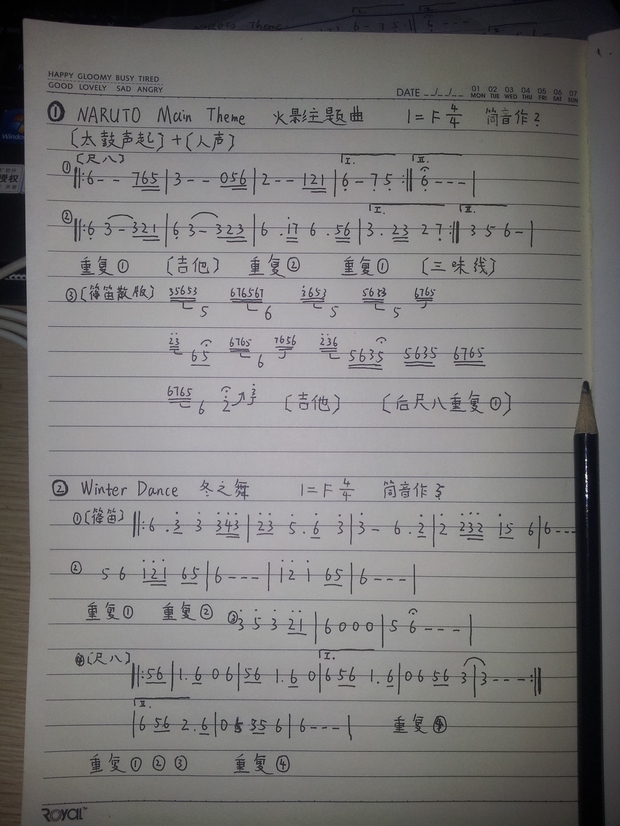 HAPPY GLOOMY BUSY TIRED
GOOD LOVELY SAD ANGRY
DATE __/__/__ 01 MON 02 TUE 03 WED 04 THU 05 FRI 06 SAT 07 SUN
① NARUTO Main Theme 火影主题曲 1=F 4/4 筒音作2
[太鼓声起]+(人声)
① (尺八)
‖:6 - - 765|3 - - 056|2 - - 121|I. 6 - 7 5:‖II. 6 - - -|
② ‖:6 3 - 321|6 3 - 323|6 .17 6 .56|I. 3 . 23 2 7:‖II. 3 5 6 -|
重复① [吉他] 重复② 重复① (三味线)
③[篠笛散版] 35653 5 676567 6 3653 5 5653 5 6765
23 65 6765 6 7656 236 5635 5635 6765
6765 6 2 3 [吉他] [后尺八重复①]
② Winter Dance 冬之舞 1=F 4/4 筒音作5
①[篠笛] ‖:6 .3 3 343|23 5 .6 3|3 - 6 .2|2 232 15 6|6 - - -
② 5 6 121 65|6 - - -|12 1 65|6 - - -|
重复① 重复② ③ 3 5 3 21|6 0 0 0|5 6 - - -|
④(尺八) ‖:56|1 .6 0 6|56 1 .6 0|I. 6 56 1 .6|06 56 3|3 - - -:‖
II. |6 56 2 .6|0 6 35 6|6 - - -| 重复④
重复①②③ 重复④
ROYAL